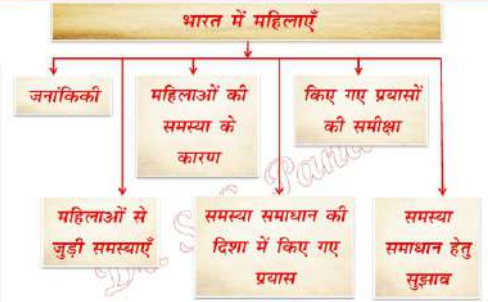 भारत में महिलाएँ
जनांकिकी
महिलाओं की
समस्या के
कारण
किए गए प्रयासों
की समीक्षा
महिलाओं से
जुड़ी समस्याएँ
समस्या समाधान की
दिशा में किए गए
प्रयास
समस्या
समाधान हेतु
सुझाव